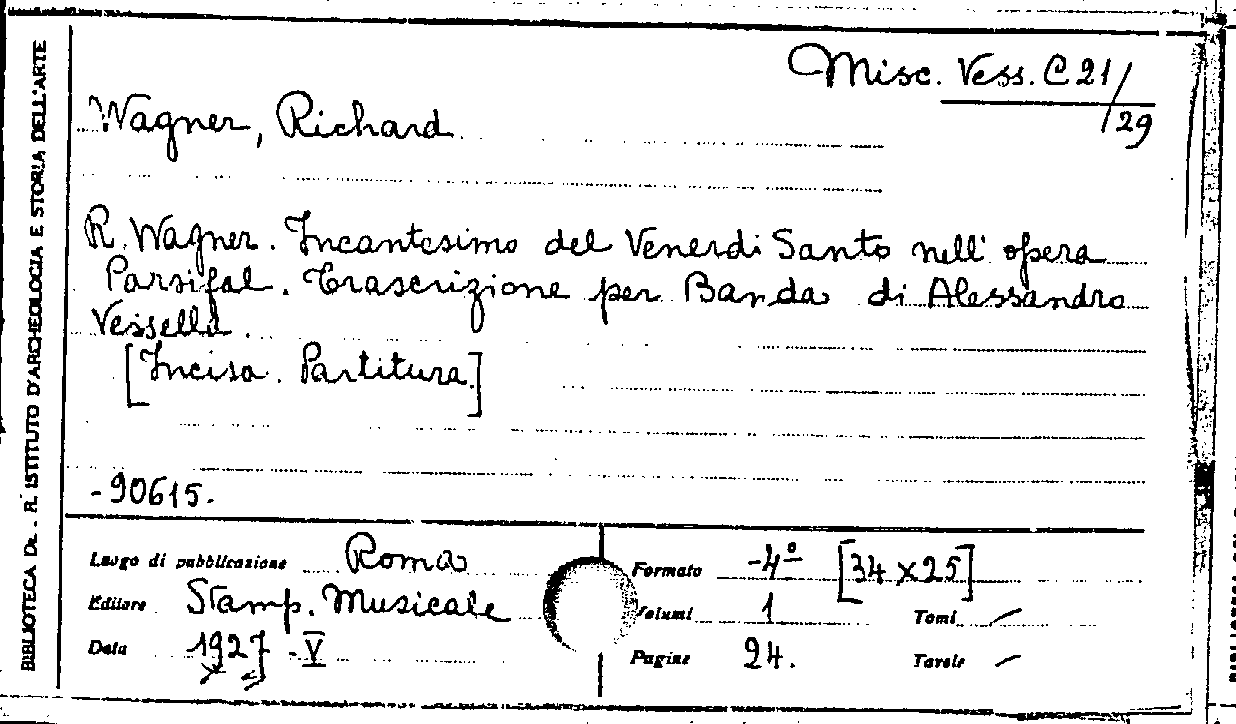 Misc. Vess. C 21/29
Wagner, Richard
R. Wagner. Incantesimo del Venerdi Santo nell' opera
Parsifal. Trascrizione per Banda di Alessandro
Vessella.
[Incisa. Partitura.]
-90615.
Luogo di pubblicazione Roma
Editore Stamp. Musicale
Data 1927 - V
Formato -4º [34 x 25]
Volumi 1 Tomi /
Pagine 24. Tavole /
BIBLIOTECA DEL R. ISTITUTO D'ARCHEOLOGIA E STORIA DELL'ARTE